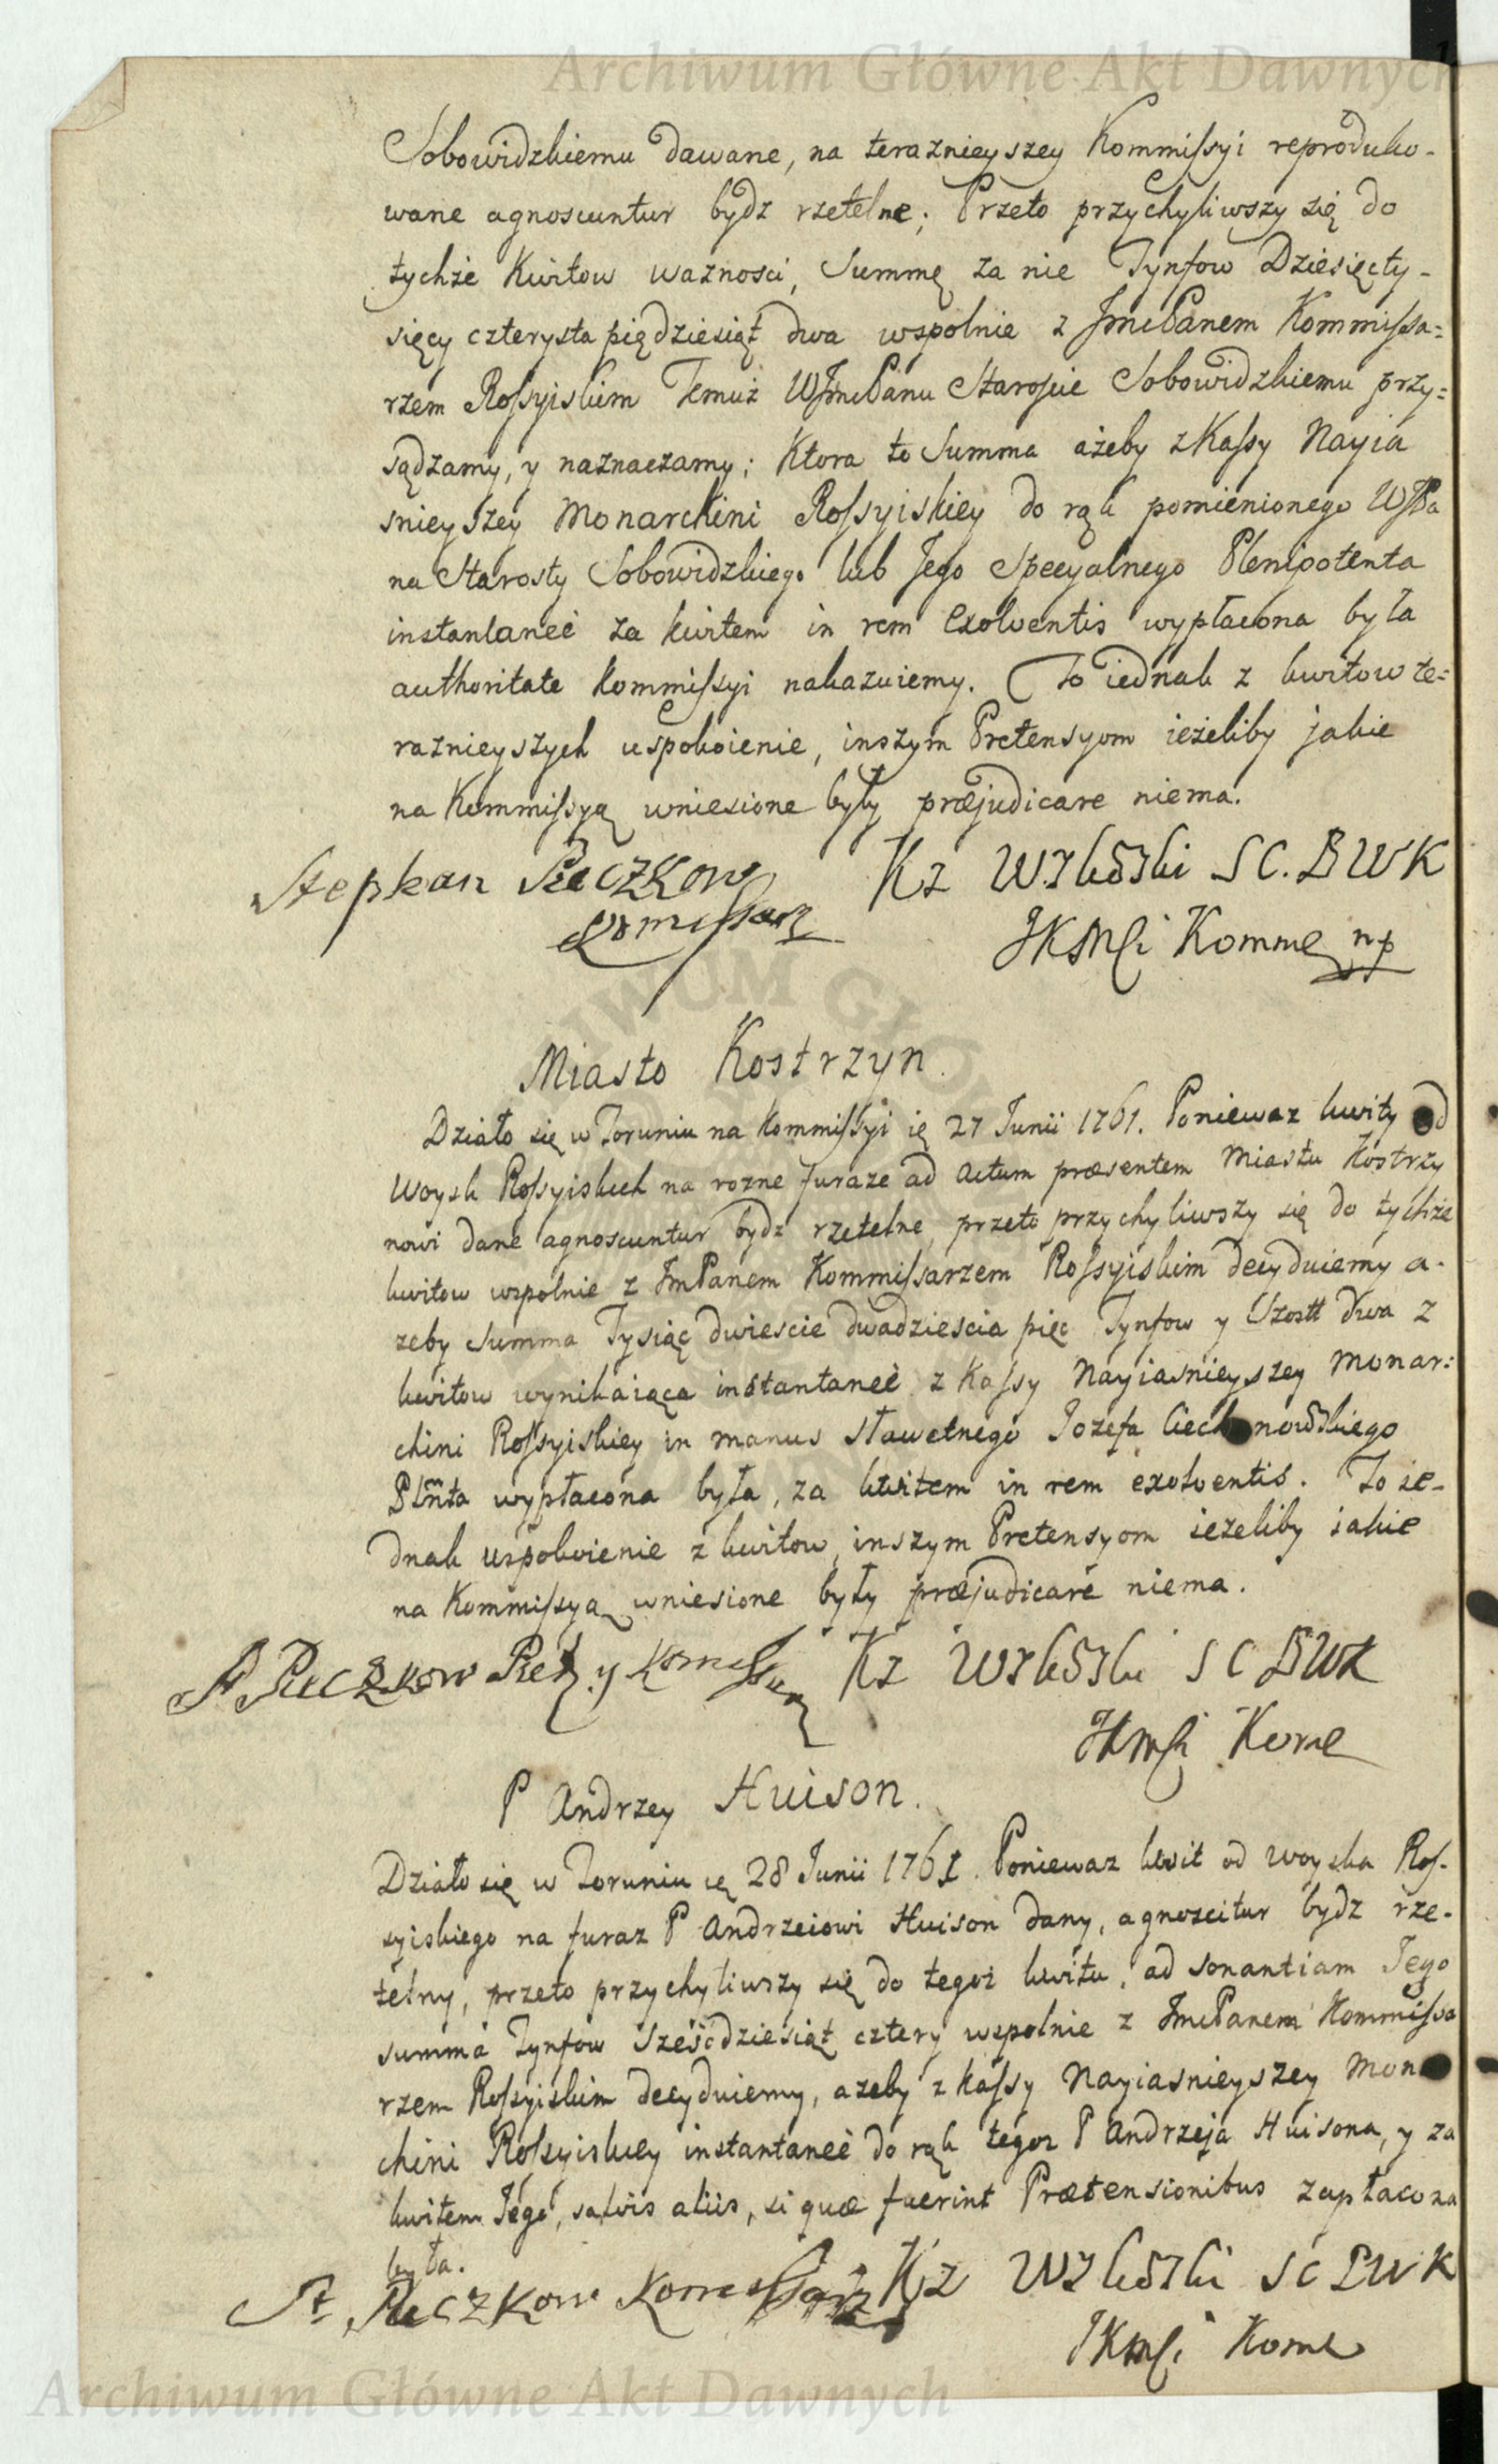 Archiwum Główne Akt Dawnych
Sobowidzkiemu dawane, na teraznieyszey Kommissyi reproduko-
wane agnoscuntur bydz rzetelne; Przeto przychyliwszy się do
tychże Kwitow waznosci, Summę za nie Tynfow Dziesięcty-
sięcy czterysta pięgdziesiąt dwa wspolnie z JmcPanem Kommissa=
rzem Rossyiskim Temuż WJmcPanu Staroscie Sobowidzkiemu przy=
sądzamy, y naznaczamy; Ktora to Summa ażeby z Kassy Nayia
snieyszey Monarchini Rossyiskiey do rąk pomienionego WJPa
na Starosty Sobowidzkiego lub Jego Specyalnego Plenipotenta
instantaneè za kwitem in rem Exolventis wypłacona była
authoritate Kommissyi nakazuiemy. To iednak z kwitow te=
raznieyszych uspokoienie, inszym Pretensyom ieżeliby jakie
na Kommissyą wniesione były præjudicare niema.
Stephan Puczkow Kz Wzleski SC. BWK
Komissarz JKMCi Komme np
Miasto Kostrzyn.
Działo się w Toruniu na Kommissyi ię 27 Junii 1761. Poniewaz kwity od
Woysk Rossyiskich na rozne furaze ad actum præsentem Miastu Kostrzy
nowi dane agnoscuntur bydz rzetelne, przeto przychyliwszy się do tychże
kwitow wspolnie z JmPanem Kommissarzem Rossyiskim decyduiemy a-
zeby Summa Tysiąc dwiescie dwadziescia pięc Tynfow y Szostt dwa z
kwitow wynikaiąca instantaneè z Kassy Nayiasnieyszey Monar=
chini Rossyiskiey in manus Sławetnego Jozefa Ciechonowskiego
Plnta wypłacona była, za kwitem in rem exolventis. To ie-
dnak uspokoienie z kwitow, inszym Pretensyom ieżeliby iakie
na Kommissyą wniesione były præjudicare niema.
St Puczkow y Komissarz Kz Wzleski SC BWK
JKMCi Kome
P Andrzey Huison.
Działo się w Toruniu ię 28 Junii 1761. Poniewaz kwit od woyska Ros-
syiskiego na furaz P Andrzeiowi Huison dany, agnoscitur bydz rze-
telny, przeto przychyliwszy się do tegoż kwitu, ad sonantiam Jego
summa Tynfow sześcdziesiąt cztery wspolnie z JmcPanem Kommissa
rzem Rossyiskim decyduiemy, azeby z kassy Nayiasnieyszey Mona
chini Rossyiskiey instantaneè do rąk tegoz P Andrzeja Huisona, y za
kwitem Jego, salvis aliis, si quæ fuerint Prætensionibus zapłacona
była.
St Puczkow Komissarz Kz Wzleski SC BWK
JKMCi Kome
Archiwum Główne Akt Dawnych